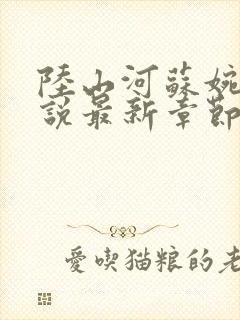 陸山河蘇婉
說最新章節
愛喫猫粮的老